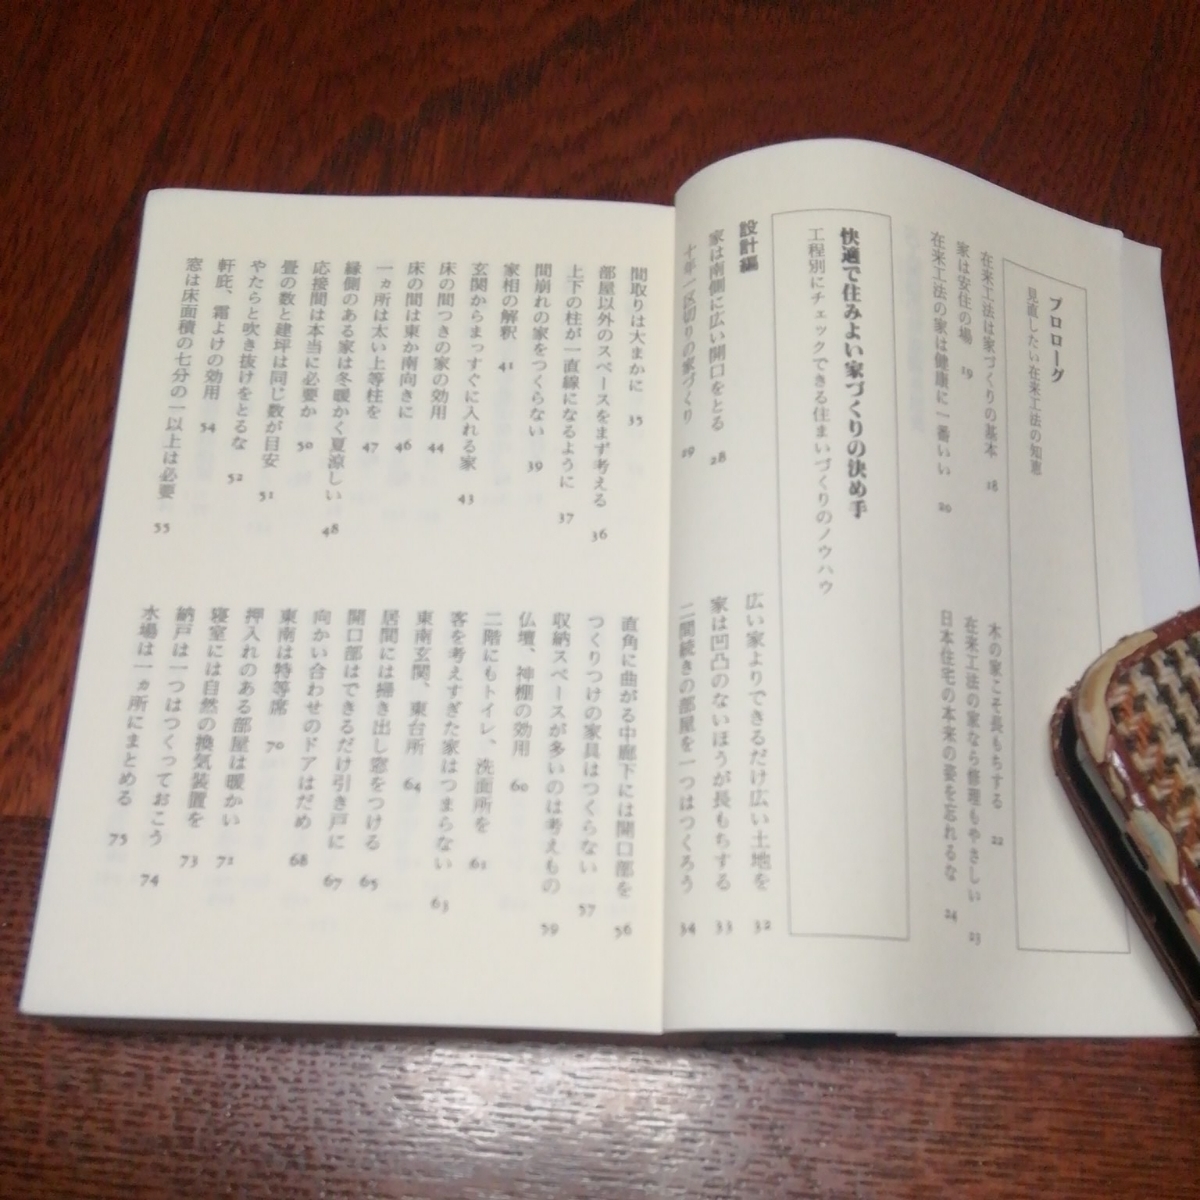 プロローグ
見直したい在来工法の知恵
在来工法は家づくりの基本 18
家は安住の場 19
在来工法の家は健康に一番いい 20
木の家こそ長もちする 22
在来工法の家なら修理もやさしい 23
日本住宅の本来の姿を忘れるな 24
快適で住みよい家づくりの決め手
工程別にチェックできる住まいづくりのノウハウ
設計編
家は南側に広い開口をとる 28
十年一区切りの家づくり 29
広い家よりできるだけ広い土地を 32
家は凹凸のないほうが長もちする 33
二間続きの部屋を一つはつくろう 34
間取りは大まかに 35
部屋以外のスペースをまず考える 36
上下の柱が一直線になるように 37
間崩れの家をつくらない 39
家相の解釈 41
玄関からまっすぐに入れる家 43
床の間つきの家の効用 44
床の間は東か南向きに 46
一ヵ所は太い上等柱を 47
縁側のある家は冬暖かく夏涼しい 48
応接間は本当に必要か 50
畳の数と建坪は同じ数が目安 51
やたらと吹き抜けをとるな 52
軒庇、霜よけの効用 54
窓は床面積の七分の一以上は必要 55
直角に曲がる中廊下には開口部を 56
つくりつけの家具はつくらない 57
収納スペースが多いのは考えもの 59
仏壇、神棚の効用 60
二階にもトイレ、洗面所を 61
客を考えすぎた家はつまらない 63
東南玄関、東台所 64
居間には掃き出し窓をつける 65
開口部はできるだけ引き戸に 67
向かい合わせのドアはだめ 68
東南は特等席 70
押入れのある部屋は暖かい 71
寝室には自然の換気装置を 73
納戸は一つはつくっておこう 74
水場は一ヵ所にまとめる 75